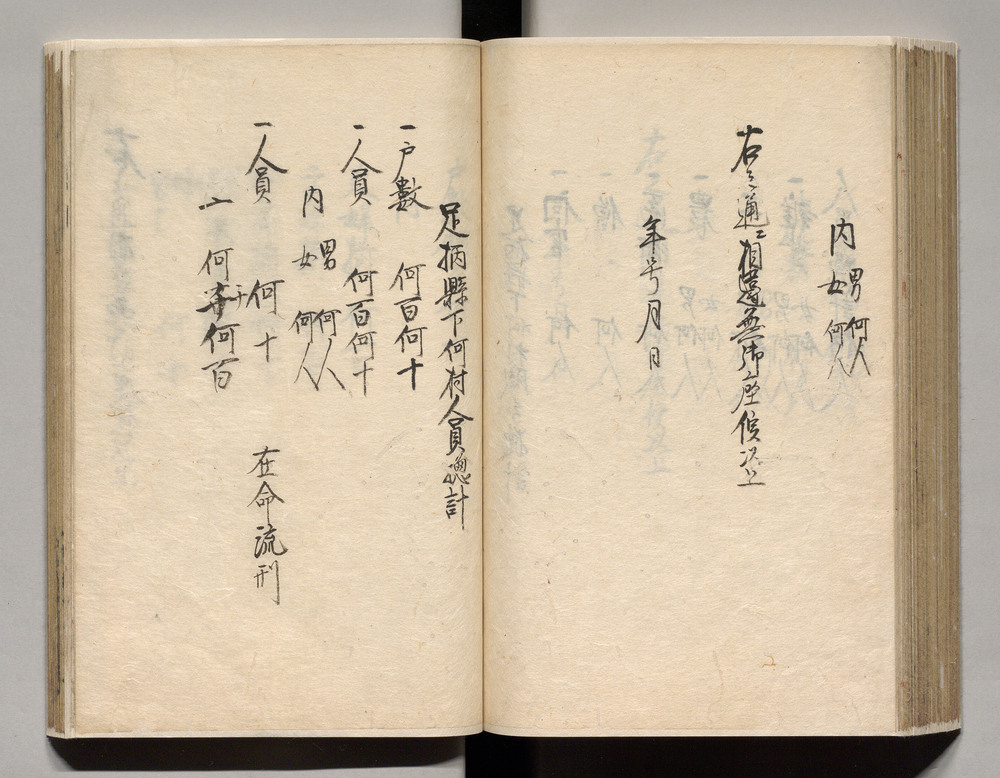 内 男 何人
女 何人
右之通ニ相違無御座候以上
年号月日
足柄縣下何村人員總計
一戸數 何百何十
一人員 何百何十
内 男 何人
女 何人
一人員 何十 在命流刑
一 何千何百